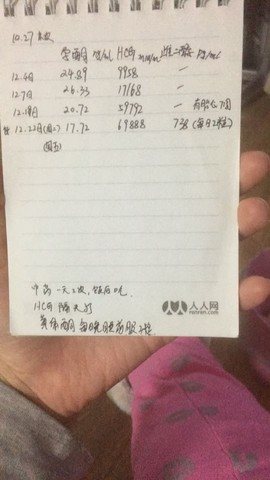 10.27 末次
孕酮 ng/ml HCG 雌二醇 pg/ml
12.4日 24.89 9958 —
12.7日 26.33 17168 —
12.18日 20.72 59792 —
12.22日 17.72 69888 738 (每日2粒)
中药 一天2次,饭后吃
HCG 隔天打
黄体酮 每晚
人人网
renren.com